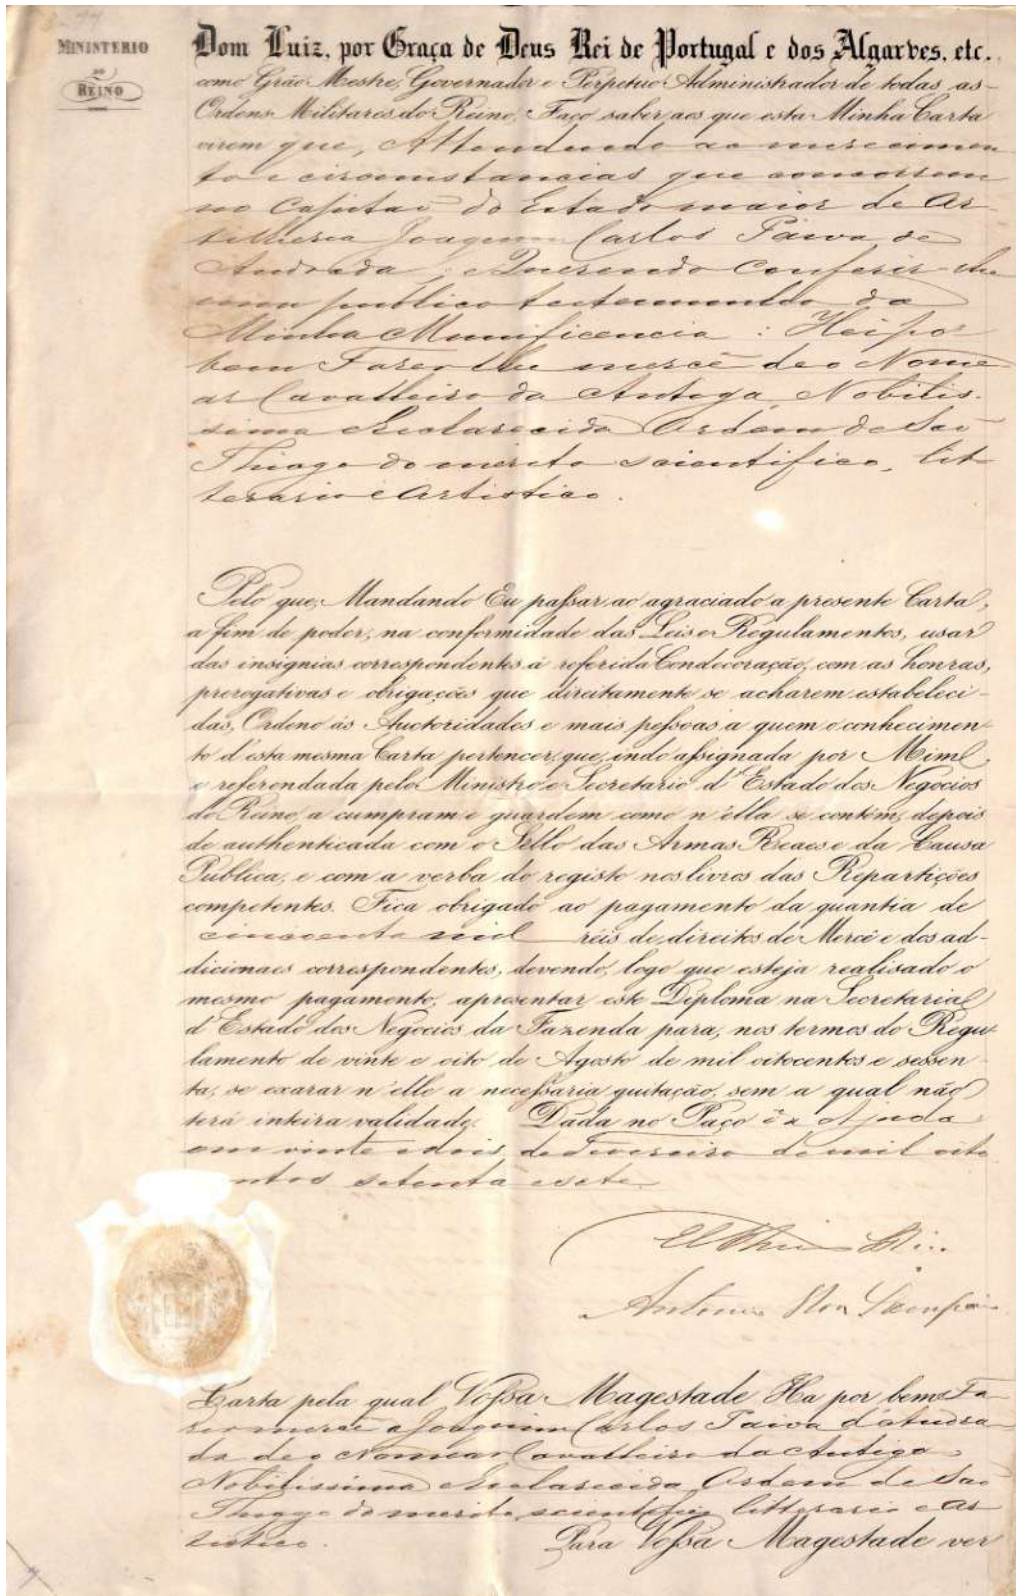 MINISTERIO
DO
REINO
Dom Luiz, por Graça de Deus Rei de Portugal e dos Algarves, etc.
como Grão-Mestre, Governador e Perpetuo Administrador de todas as
Ordens Militares do Reino, Faço saber aos que esta Minha Carta
virem que, Attendendo ao merecimen
to e circumstancias que concorrem
no Capitaõ do Estado maior de Ar
tilheria Joaquim Carlos Paiva de
Andrada; Querendo Conferir-lhe
um publico testemunho da
Minha Munificencia: Hei por
bem Fazer-lhe mercê de o Nome
ar Cavalleiro da Antiga, Nobilis-
sima e Esclarecida Ordem de Saõ
Thiago do merito scientifico, lit
terario e Artistico.
Pelo que, Mandando Eu passar ao agraciado a presente Carta,
a fim de poder, na conformidade das Leis e Regulamentos, usar
das insignias correspondentes á referida Condecoração, com as honras,
prerogativas e obrigações que direitamente se acharem estabeleci-
das, Ordeno ás Auctoridades e mais pessoas a quem o conhecimen-
to d'esta mesma Carta pertencer, que, indo assignada por Mim
e referendada pelo Ministro e Secretario d'Estado dos Negocios
do Reino, a cumpram e guardem como n'ella se contém, depois
de authenticada com o Sello das Armas Reaes e da Causa
Publica, e com a verba do registo nos livros das Repartições
competentes. Fica obrigado ao pagamento da quantia de
cincoenta mil réis de direitos de Mercê e dos ad-
dicionaes correspondentes, devendo, logo que esteja realisado o
mesmo pagamento, apresentar este Diploma na Secretaria
d'Estado dos Negocios da Fazenda para, nos termos do Regu-
lamento de vinte e oito de Agosto de mil oitocentos e sessen-
ta, se exarar n'elle a necessaria quitação, sem a qual não
terá inteira validade. Dada no Paço da Ajuda
em vinte e dois de Fevereiro de mil oito
ntos setenta e sete
El Rei
Antonio Sampaio
Carta pela qual Vossa Magestade Ha por bem Fa
zer mercê a Joaquim Carlos Paiva d'Andra
da de o Nomear Cavalleiro da Antiga,
Nobilissima e Esclarecida Ordem de Saõ
Thiago do merito scientifico, litterario e Ar
tistico. Para Vossa Magestade ver